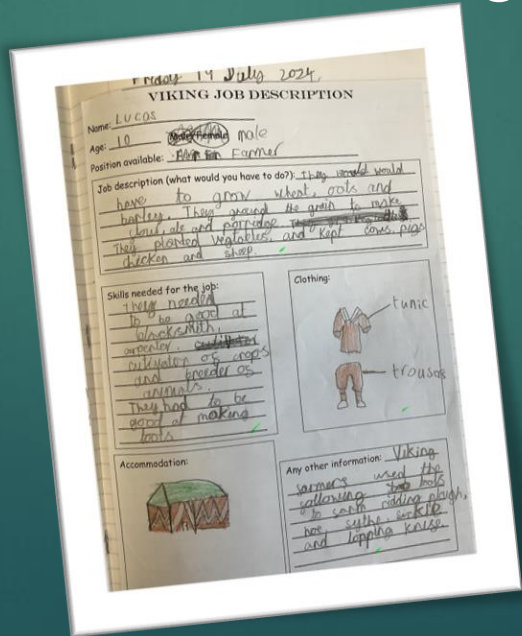 Friday 19 July 2024
VIKING JOB DESCRIPTION
Name: LUCAS
Age: 10 male
Position available: Farmer
Job description (what would you have to do?): They would
have to grow wheat, oats and
barley. They ground the grain to make
flour, ale and porridge
They planted vegtables, and kept cows, pigs
chicken and sheep.
Skills needed for the job:
They needed
to be good at
blacksmith,
carpenter,
cultivator of crops
and breeder of
animals.
They had to be
good at making
tools
Clothing:
tunic
trousers
Accommodation:
Any other information: Viking
farmers used the
following tools
to farm plough,
hoe, sythe, sickle
and lopping knife